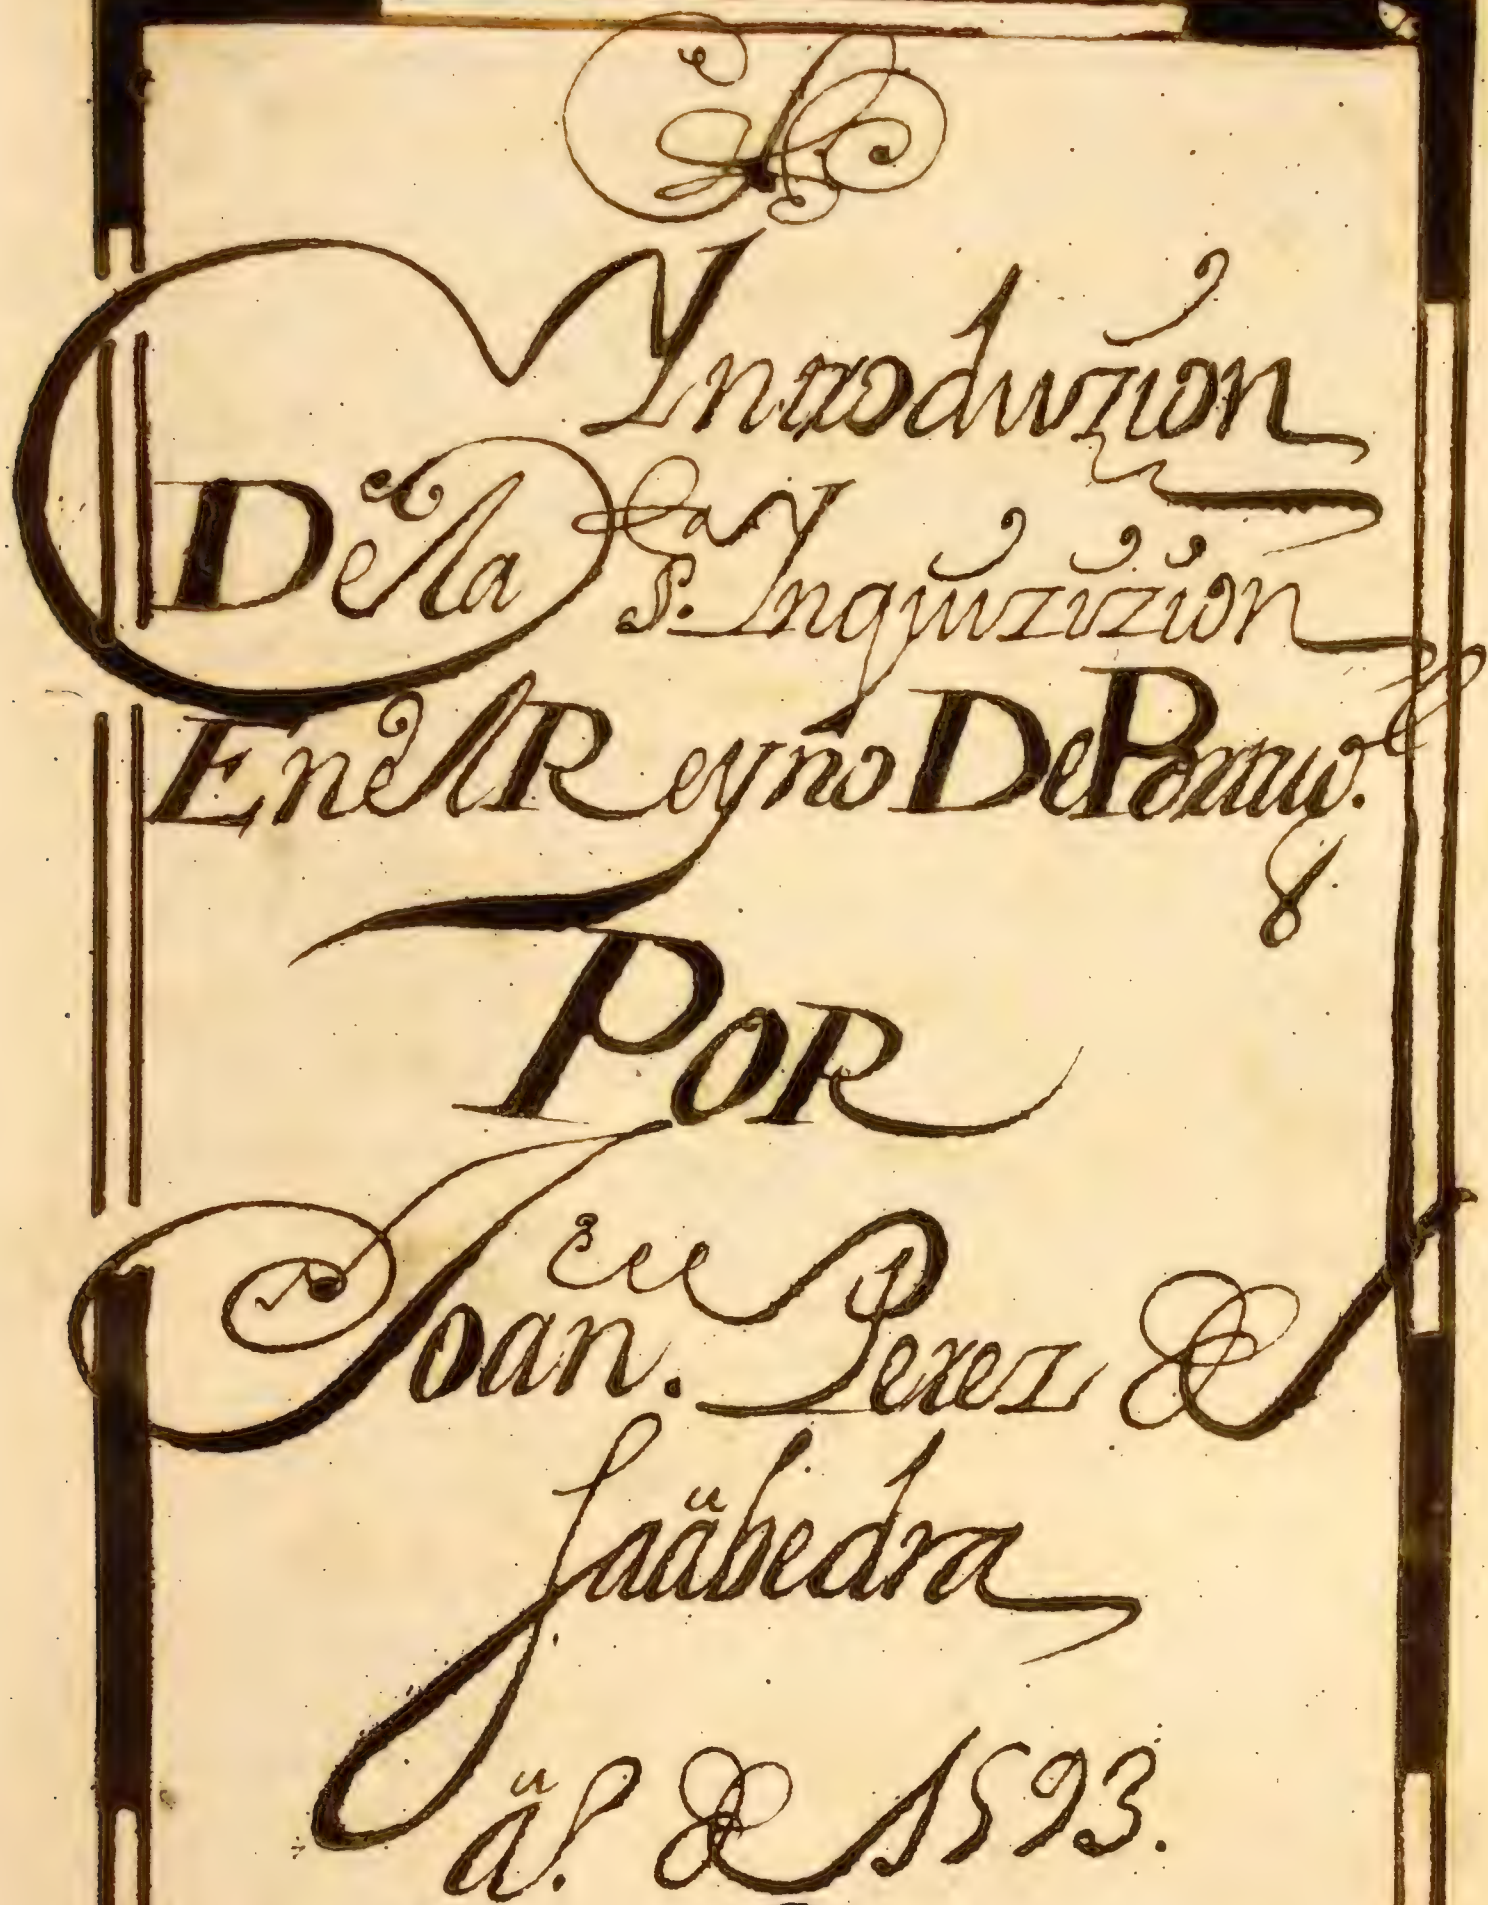 Yntroduzion
De la S.ta Ynquizizion
En el Reyno De Portug.l
POR
Joan. Perez de
Saabedra
a.s de 1593.